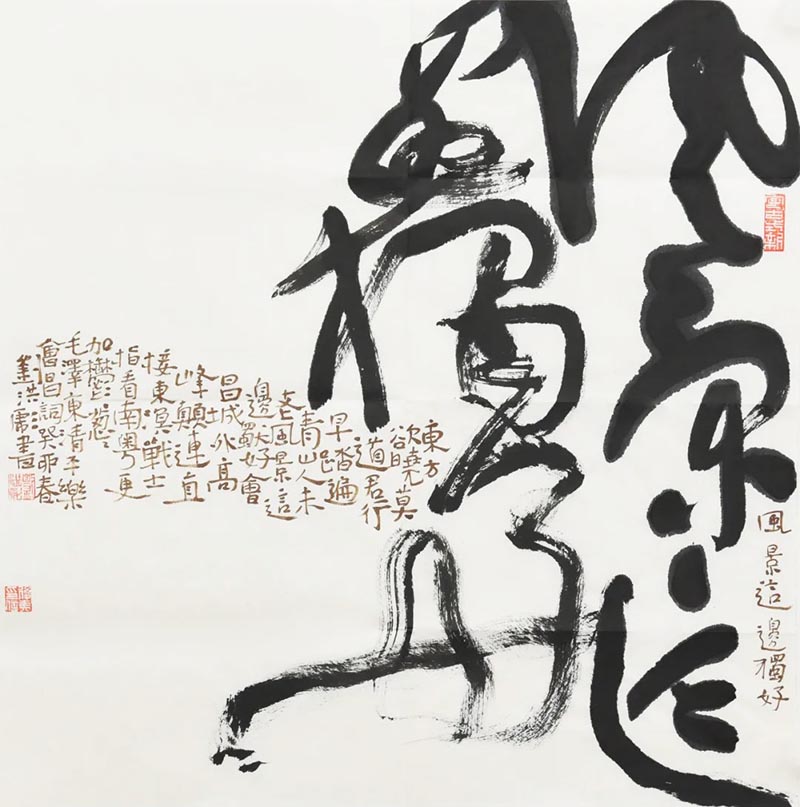 風景這
邊獨好
風景這邊獨好
東方
欲曉莫
道君行
早踏遍
青山人未
老風景這
邊獨好會
昌城外高
峰顛連直
接東溟戰士
指看南粵更
加鬱蔥〻
毛澤東清平樂
會昌詞癸卯春
書